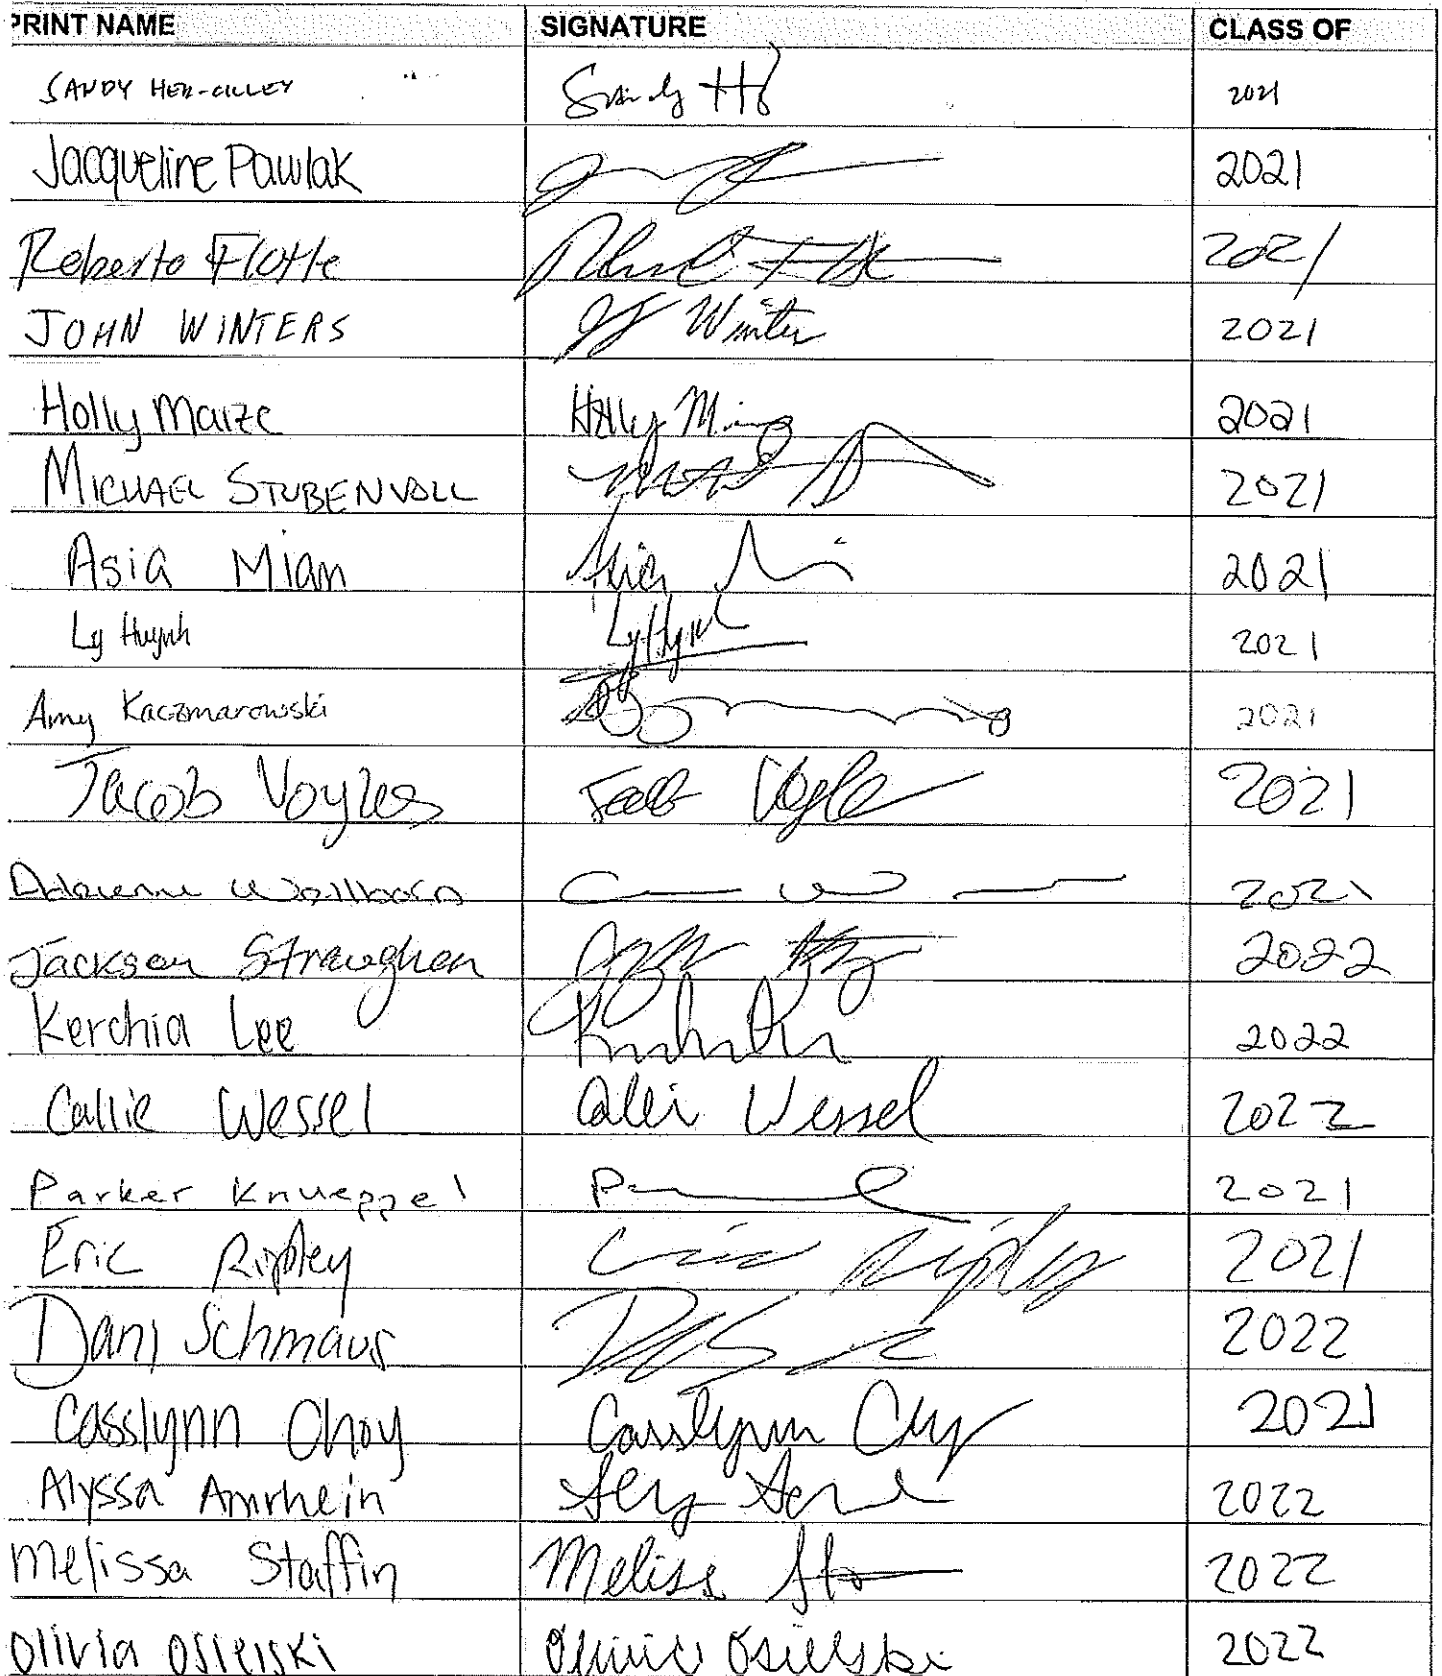 PRINT NAME SIGNATURE CLASS OF
SANDY HER-CILLEY Sandy H 2021
Jacqueline Pawlak 2021
Roberto Flotte 2021
JOHN WINTERS Winter 2021
Holly Maize Holly 2021
MICHAEL STUBENVOLL 2021
Asia Mian Asia 2021
Ly Huynh Ly Hynh 2021
Amy Kaczmarowski 2021
Jacob Voyles 2021
Wellborn 2021
Jackson Straughen 2022
Kerchia Lee 2022
Callie Wessel Callie Wessel 2022
Parker Knueppel 2021
Eric Ripley Eric Ripley 2021
Dani Schmaus 2022
Casslynn Choy Casslynn Choy 2021
Alyssa Amrhein 2022
Melissa Staffin Meliss 2022
Olivia Osielski Olivia Osielski 2022